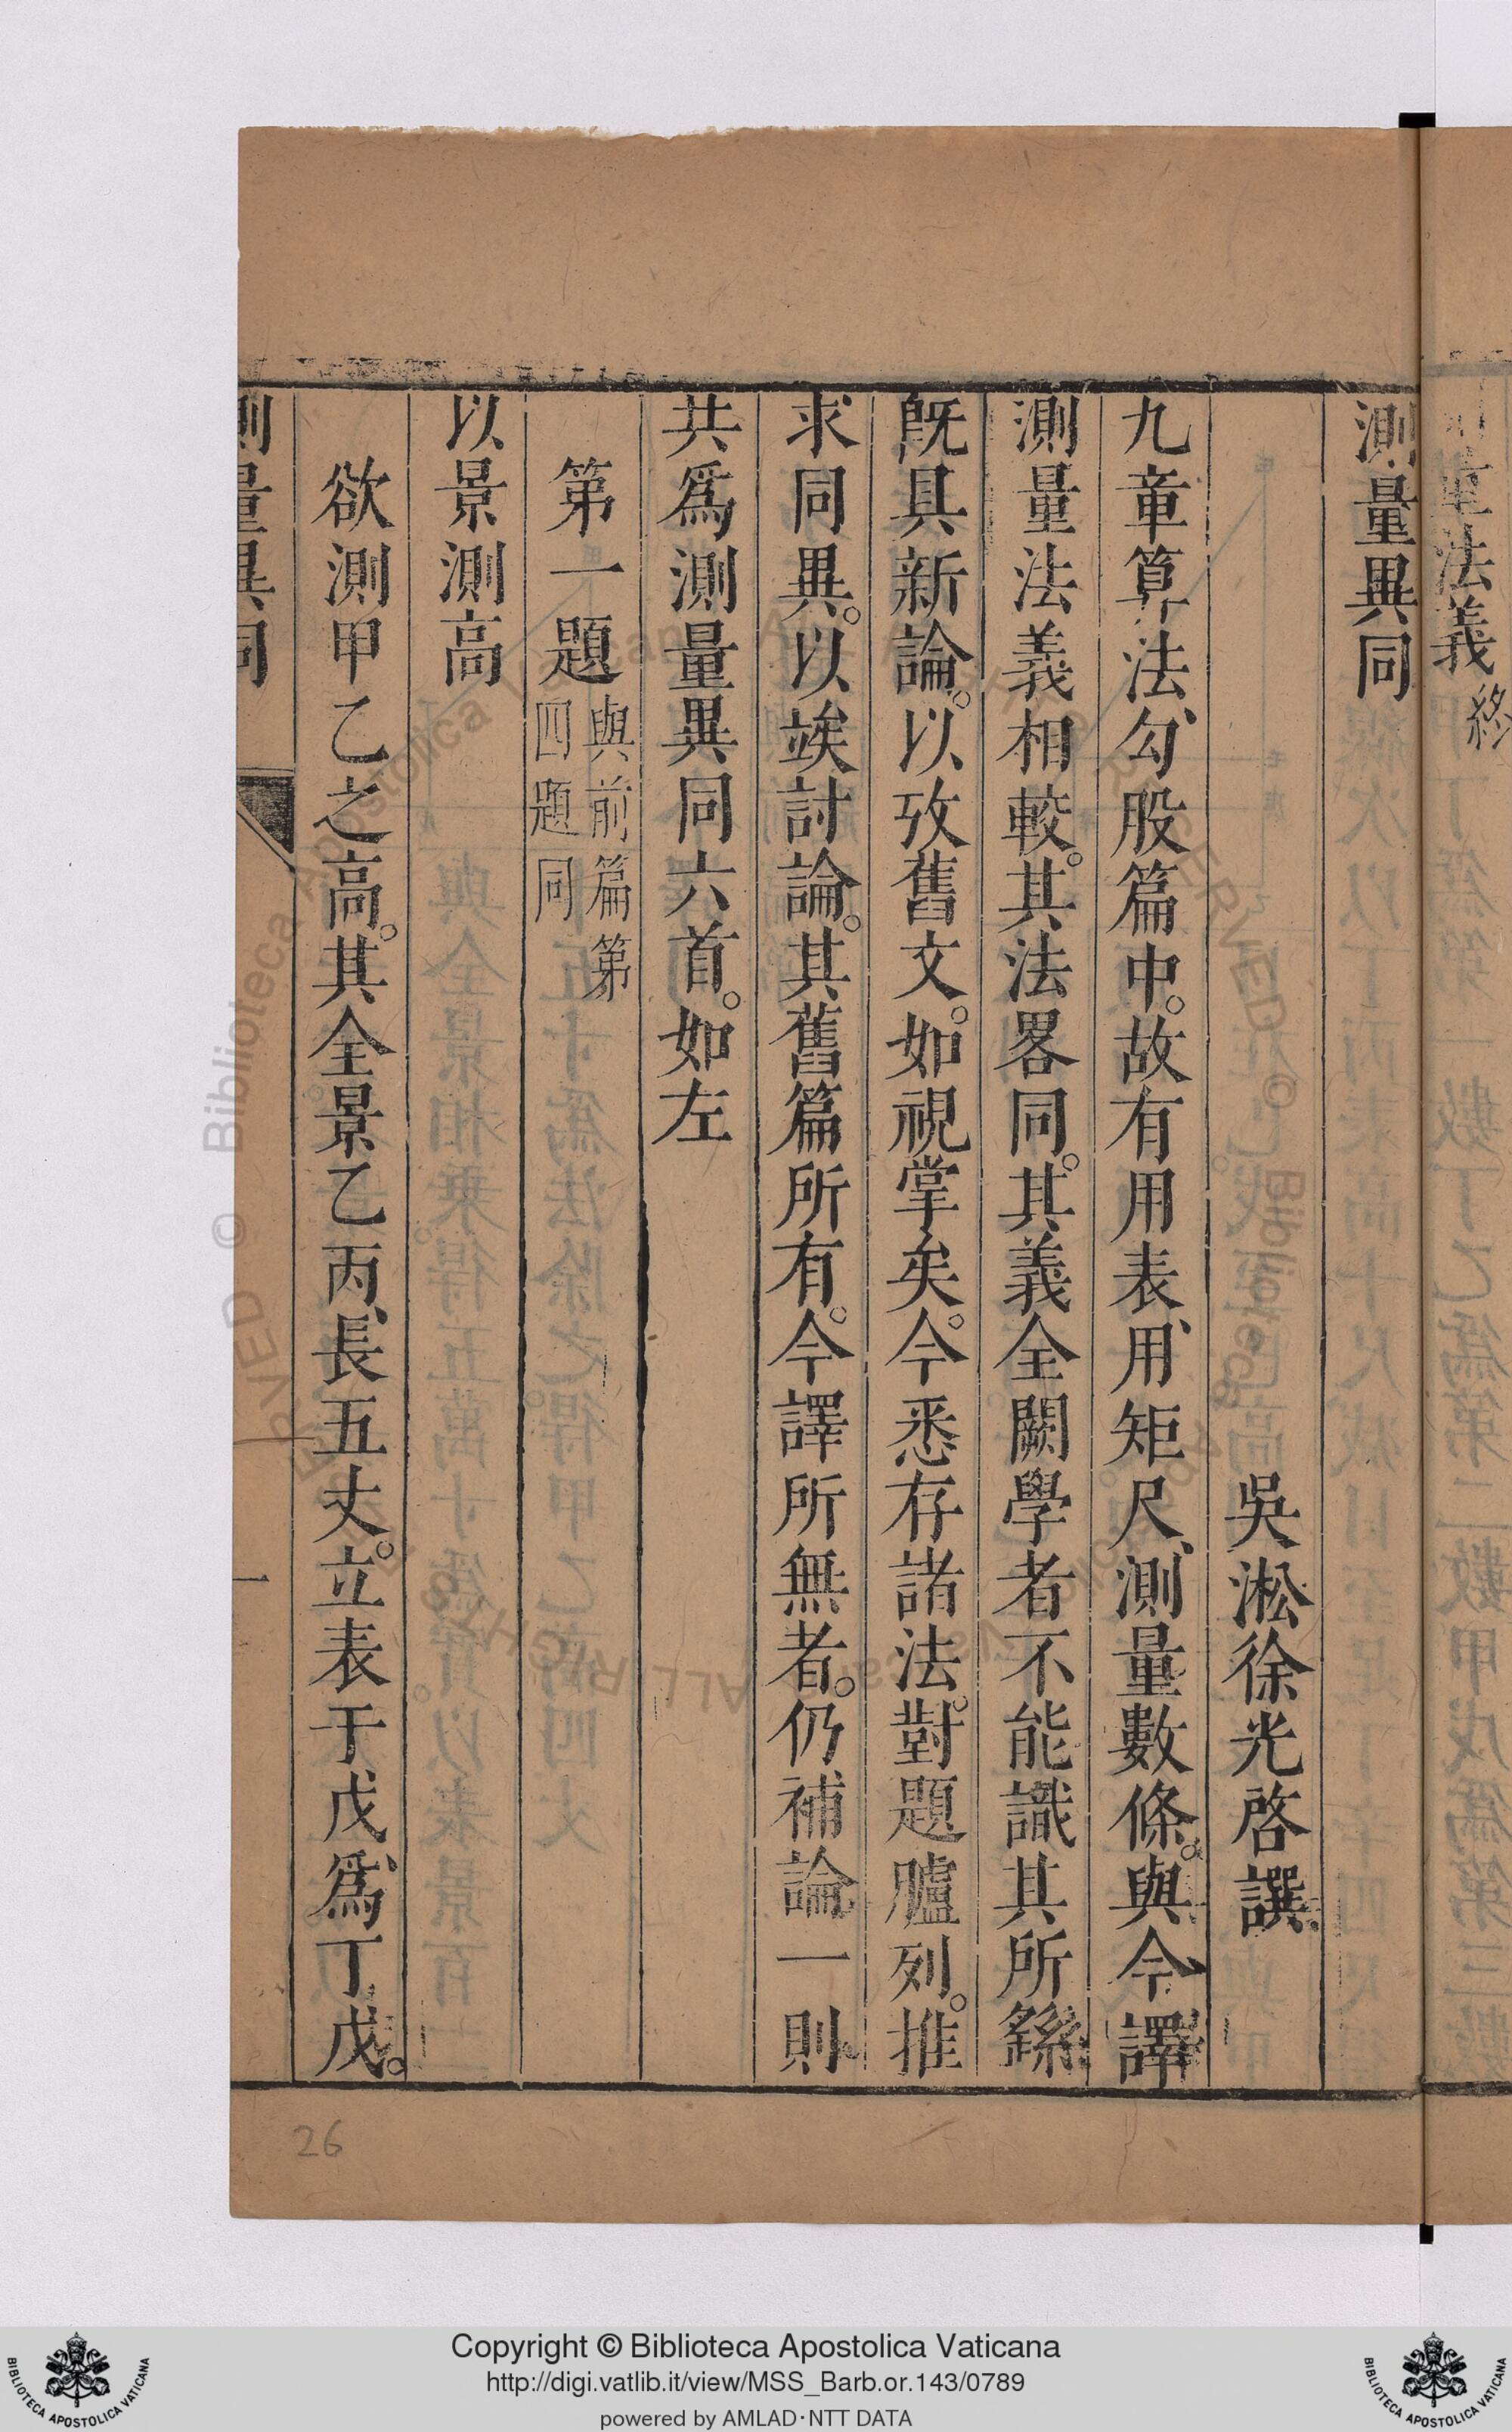 法義
終
測量異同
吳淞徐光啓譔
九章算法、勾股篇中。故有用表、用矩尺、測量數條。與今譯
測量法義相較。其法畧同。其義全闕學者不能識其所繇
既具新論。以攷舊文。如視掌矣。今悉存諸法。對題臚列。推
求同異。以竢討論。其舊篇所有。今譯所無者。仍補論一則
共爲測量異同六首。如左
第一題
與前篇第
四題同
以景測高
欲測甲乙之高。其全景乙丙、長五丈。立表于戊、爲丁戊。
測量異同
一
26
Copyright © Biblioteca Apostolica Vaticana
http://digi.vatlib.it/view/MSS_Barb.or.143/0789
powered by AMLAD·NTT DATA
BIBLIOTECA APOSTOLICA VATICANA
BIBLIOTECA APOSTOLICA VATICANA